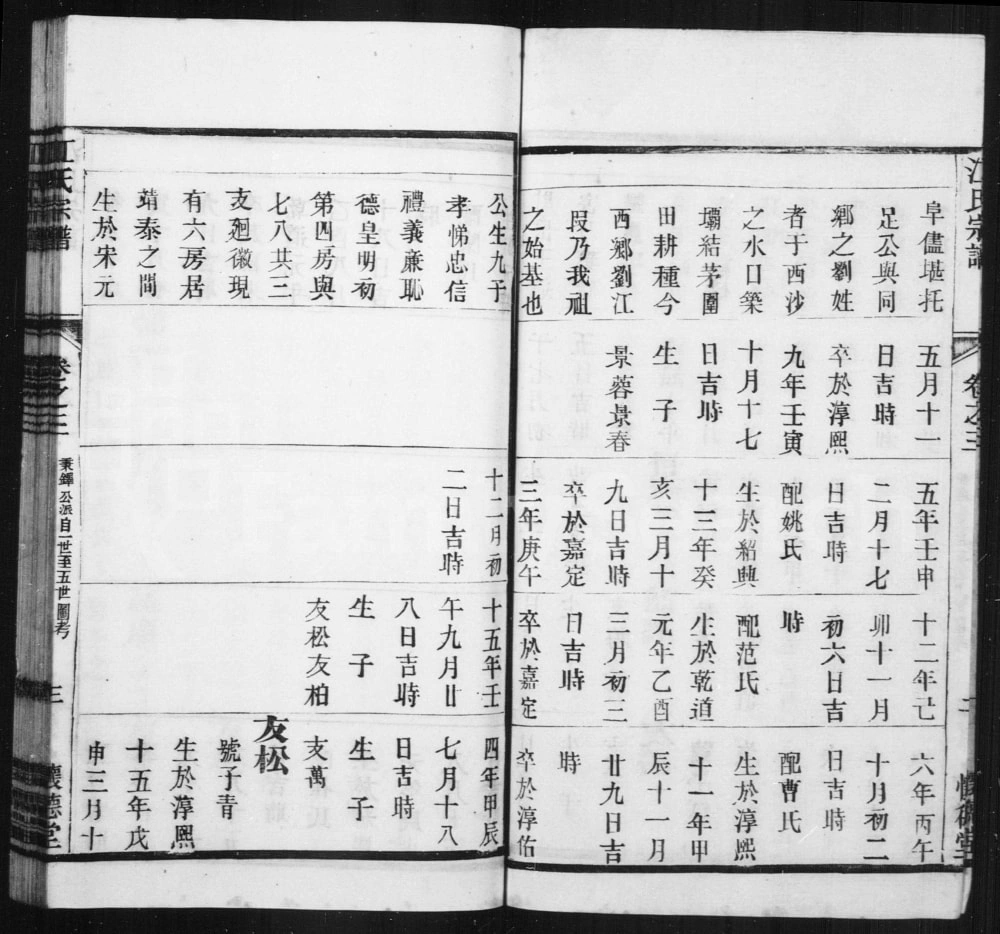 江氏宗譜
卷之三
懷德堂
阜儘堪托
足公與同
鄉之劉姓
者于西沙
之水口築
壩結茅圍
田耕種今
西鄉劉江
段乃我祖
之始基也
五月十一
日吉時
卒於淳熙
九年壬寅
十月十七
日吉時
生子
景蓉景春
五年壬申
二月十七
日吉時
配姚氏
生於紹興
十三年癸
亥三月十
九日吉時
卒於嘉定
三年庚午
十二年己
卯十一月
初六日吉
時
配范氏
生於乾道
元年乙酉
三月初三
日吉時
卒於嘉定
六年丙午
十月初二
日吉時
配曹氏
生於淳熙
十一年甲
辰十一月
廿九日吉
時
卒於淳佑
公生九子
孝悌忠信
禮義廉恥
德皇明初
第四房與
七八共三
支迴徽現
有六房居
靖泰之間
生於宋元
十二月初
二日吉時
十五年壬
午九月廿
八日吉時
生子
友松友柏
四年甲辰
七月十八
日吉時
生子
支萬
友松
號子青
生於淳熙
十五年戊
申三月十
江氏宗譜
卷之三
秉鐸公派自一世至五世圖考
三
懷德堂